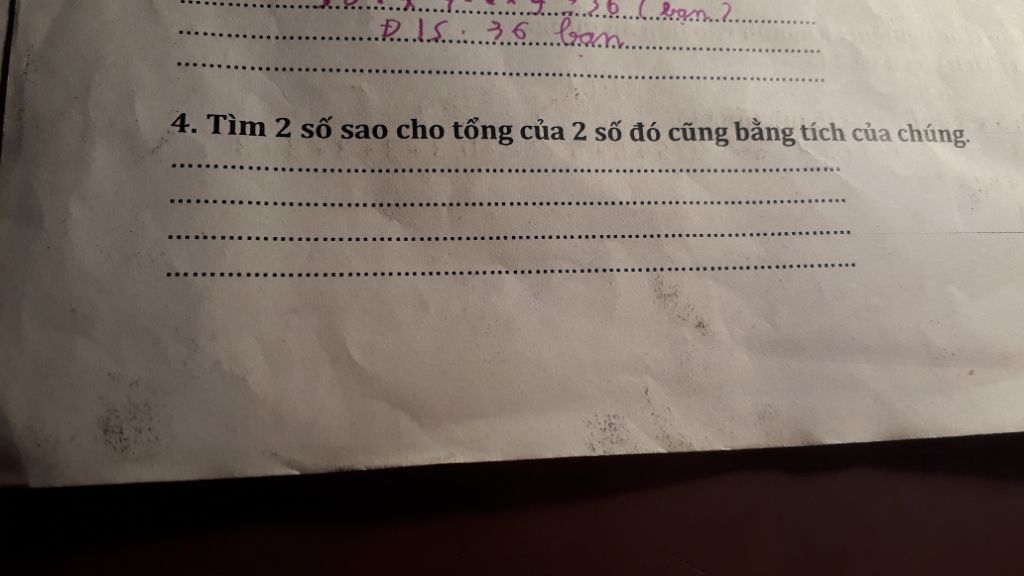 36 (bạn)
Đ/S: 36 bạn
4. Tìm 2 số sao cho tổng của 2 số đó cũng bằng tích của chúng.